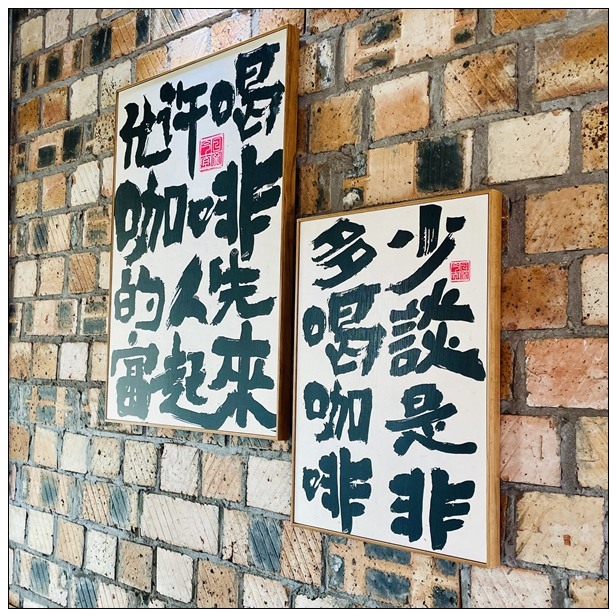 允许喝
咖啡
的人先
富起來
少談是非
多喝咖啡